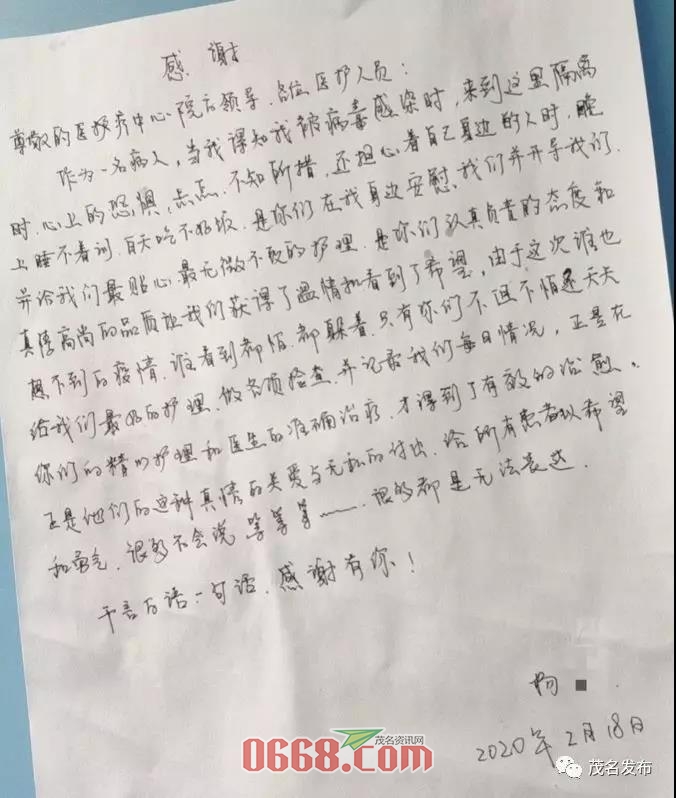 感谢
尊敬的医疗中心院方领导、各位医护人员:
作为一名病人,当我得知我被病毒感染时,来到这里隔离
时,心上的恐惧,忐忑,不知所措,还担心着自己身边的人时,晚
上睡不着训,白天吃不好饭,是你们在我身边安慰、我们并开导我们.
并给我们最贴心、最无微不致的护理,是你们认真负责的态度和
真情高尚的品质让我们获得了温情和看到了希望,由于这次谁也
想不到的疫情,谁看到都怕、都躲着,只有你们不退不怕还天天
给我们最好的护理,做各项检查,并记录我们每日情况,正是在
你们的精心护理和医生的准确治疗,才得到了有效的治愈。
正是他们的这种真情的关爱与无私的付出,给所有患者以希望
和勇气,很多不会说等等等……很多都是无法表达.
千言万语一句话,感谢有你!
杨
2020年2月18日
茂名资讯网
0668.com
茂名发布